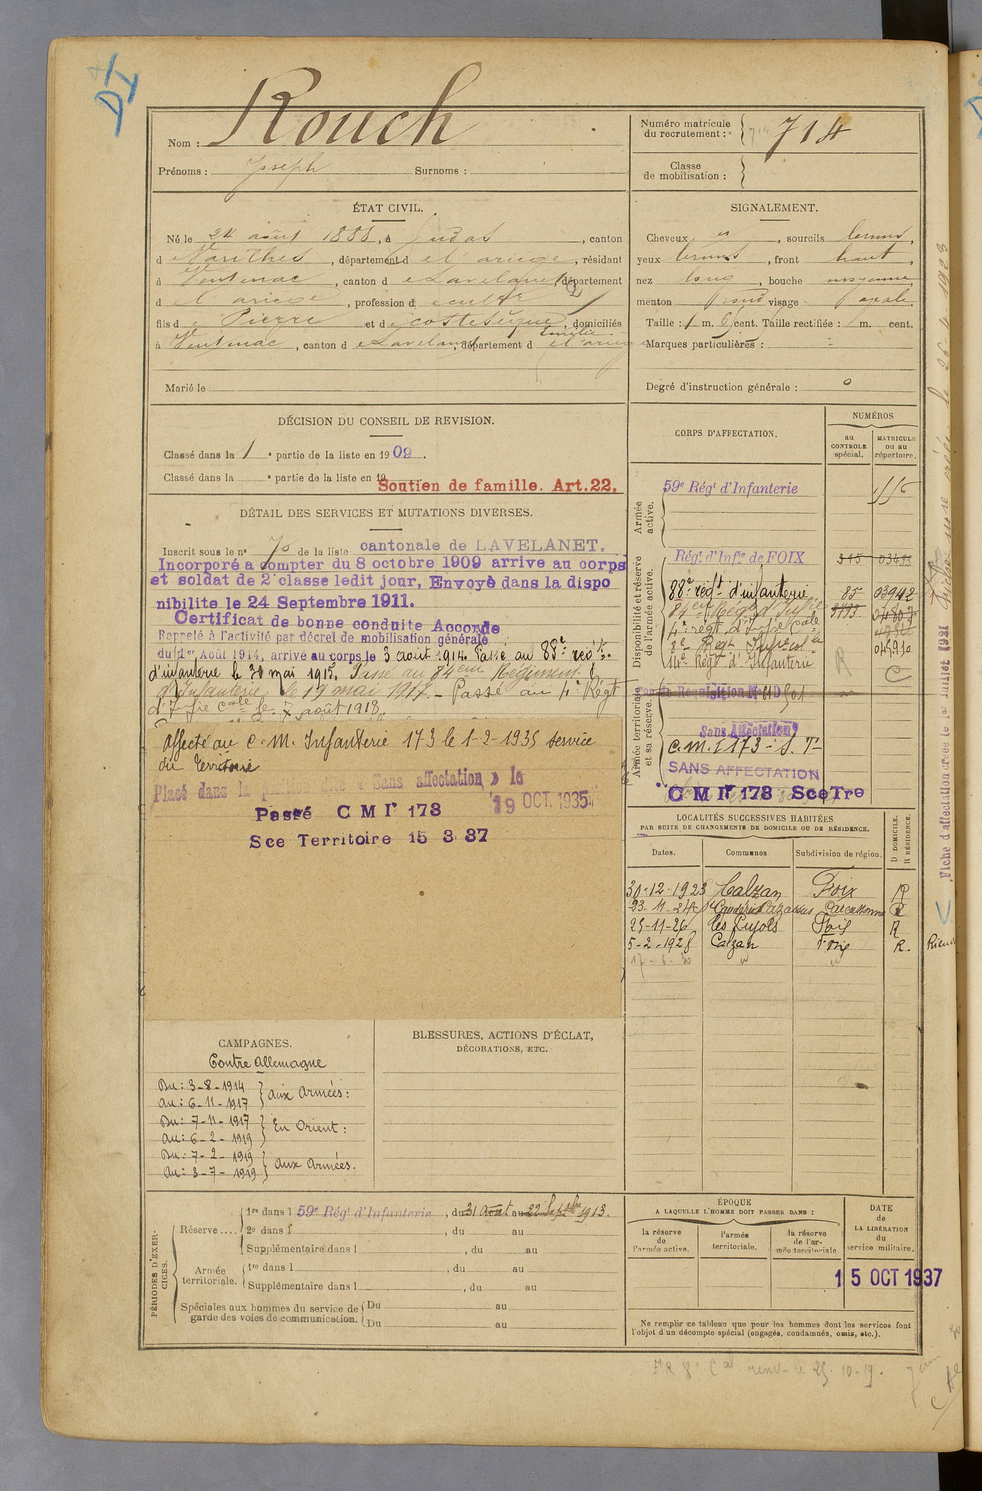 Nom : Rouch
Prénoms : Joseph Surnoms :
Numéro matricule du recrutement : 714
Classe de mobilisation :
ÉTAT CIVIL.
Né le 24 août 1888, à Ludas, canton
d Varilhes, département d e l'ariège, résidant
à Ventenac, canton d e Lavelanet, département
d e l'ariège, profession d cultr
fils d e Pierre et d e Costesèque Emilie, domiciliés
à Ventenac, canton d e Lavelanet, département d e l'ariège
Marié le
SIGNALEMENT.
Cheveux et, sourcils bruns,
yeux bruns, front haut,
nez long, bouche moyenne
menton rond visage ovale.
Taille : 1 m. 6 cent. Taille rectifiée : m. cent.
Marques particulières :
Degré d'instruction générale : 0
DÉCISION DU CONSEIL DE REVISION.
Classé dans la 1e partie de la liste en 1909.
Classé dans la e partie de la liste en 19
Soutien de famille. Art.22.
DÉTAIL DES SERVICES ET MUTATIONS DIVERSES.
Inscrit sous le no 70 de la liste cantonale de LAVELANET.
Incorporé a compter du 8 octobre 1909 arrive au corps
et soldat de 2e classe ledit jour, Envoyé dans la dispo
nibilite le 24 Septembre 1911.
Certificat de bonne conduite Accorde
Rappelé à l'activité par décret de mobilisation générale
du 1er Août 1914, arrivé au corps le 3 août 1914. Passé au 88e régt
d'infanterie le 30 mai 1915. Passé au 84eme Régiment
d'Infanterie le 19 mai 1917. - Passé au 4e Régt
d'Infie Cole le 7 août 1918.
Affecté au C.M. Infanterie 173 le 1-2-1935 service
du Territoire
Placé dans la « Sans affectation » le
19 OCT. 1935
Passé C M Ir 173
Sce Territoire 15 3 37
CORPS D'AFFECTATION.
NUMÉROS
au CONTROLE spécial.
MATRICULE ou au répertoire.
Armée active.
59e Régt d'Infanterie
Disponibilité et réserve de l'armée active.
Régt d'Infie de FOIX
88e régt d'infanterie 85 03942
4e régt d'Infie Cole
14e Régt d'Infanterie
R
C
Armée territoriale et sa réserve.
Sans Affectation
C.M.I 173 - S.T-
SANS AFFECTATION
C M Ir 173 Sce Tre
LOCALITÉS SUCCESSIVES HABITÉES
PAR SUITE DE CHANGEMENTS DE DOMICILE OU DE RÉSIDENCE.
Dates. Communes Subdivision de région. D DOMICILE. R RÉSIDENCE.
30-12-1923 Calzan Foix R
23-11-24 Carcassonne R
25-11-26 les Pujols Foix R
5-2-1928 Calzan Foix R.
Fiche d'affectation créée le 1er Juillet 1921
CAMPAGNES.
Contre Allemagne
Du : 3-8-1914
au : 6-11-1917 } aux Armées :
Du : 7-11-1917
au : 6-2-1919 } En Orient :
Du : 7-2-1919
au : 3-7-1919 } aux Armées.
BLESSURES, ACTIONS D'ÉCLAT,
DÉCORATIONS, ETC.
PÉRIODES D'EXERCICES.
Réserve ....
1re dans l 59e Régt d'Infanterie, du 31 août au 22 Septbre 1913.
2e dans l , du au
Supplémentaire dans l , du au
Armée territoriale.
1re dans l , du au
Supplémentaire dans l , du au
Spéciales aux hommes du service de garde des voies de communication.
Du au
Du au
ÉPOQUE
A LAQUELLE L'HOMME DOIT PASSER DANS :
la réserve de l'armée active.
l'armée territoriale.
la réserve de l'armée territoriale
DATE de LA LIBÉRATION du service militaire.
15 OCT 1937
Ne remplir ce tableau que pour les hommes dont les services font
l'objet d'un décompte spécial (engagés, condamnés, omis, etc.).